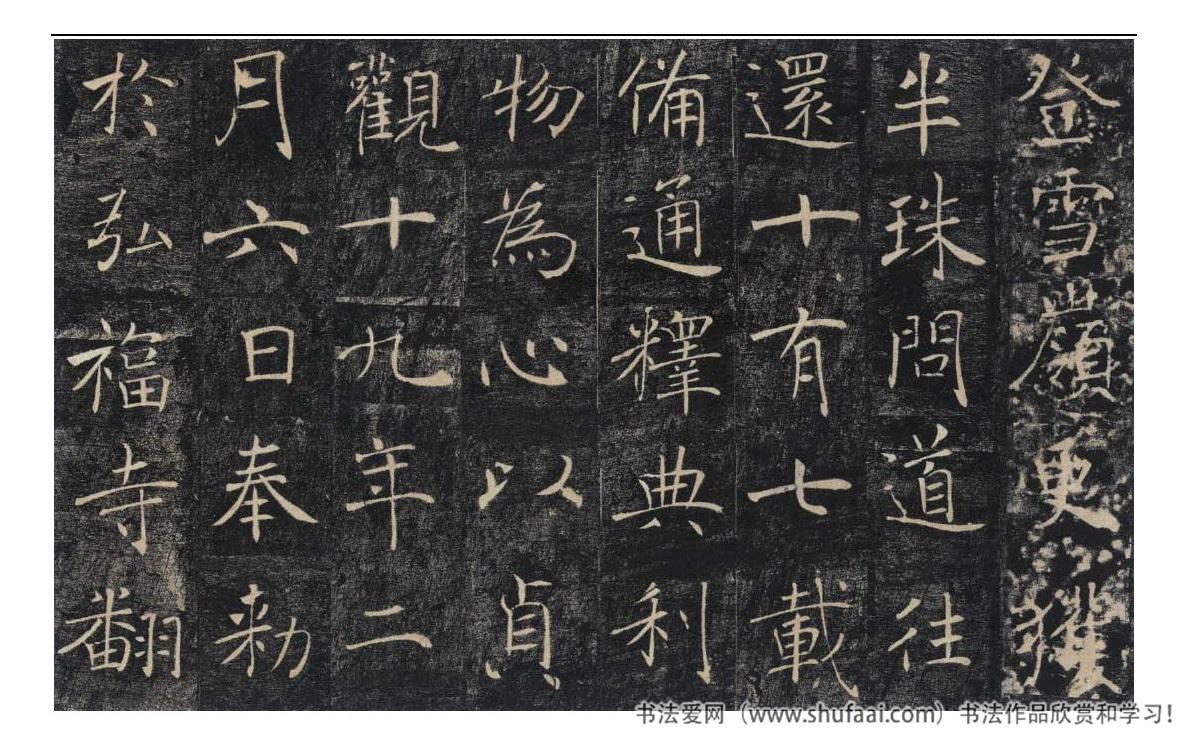 登雪嶺更獲
半珠問道往
還十有七載
備通釋典利
物為心以貞
觀十九年二
月六日奉勑
於弘福寺翻
书法爱网（www.shufaai.com）书法作品欣赏和学习！